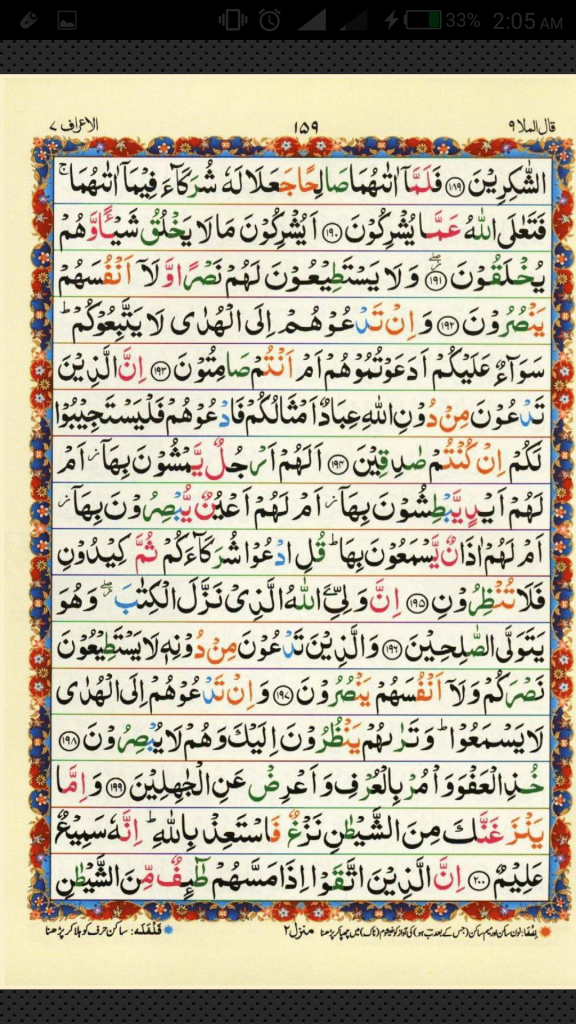 33% 2:05 AM
قال الملا ٩ ١٥٩ الاعراف ٧
الشّٰكِرِيْنَ ﴿١٨٩﴾ فَلَمَّاۤ اٰتٰىهُمَا صَالِحًا جَعَلَا لَهٗ شُرَكَآءَ فِيْمَاۤ اٰتٰىهُمَا ۚ
فَتَعٰلَى اللّٰهُ عَمَّا يُشْرِكُوْنَ ﴿١٩٠﴾ اَيُشْرِكُوْنَ مَا لَا يَخْلُقُ شَيْـًٔا وَّهُمْ
يُخْلَقُوْنَ ﴿١٩١﴾ وَلَا يَسْتَطِيْعُوْنَ لَهُمْ نَصْرًا وَّلَاۤ اَنْفُسَهُمْ
يَنْصُرُوْنَ ﴿١٩٢﴾ وَاِنْ تَدْعُوْهُمْ اِلَى الْهُدٰى لَا يَتَّبِعُوْكُمْ ؕ
سَوَآءٌ عَلَيْكُمْ اَدَعَوْتُمُوْهُمْ اَمْ اَنْتُمْ صَامِتُوْنَ ﴿١٩٣﴾ اِنَّ الَّذِيْنَ
تَدْعُوْنَ مِنْ دُوْنِ اللّٰهِ عِبَادٌ اَمْثَالُكُمْ فَادْعُوْهُمْ فَلْيَسْتَجِيْبُوْا
لَكُمْ اِنْ كُنْتُمْ صٰدِقِيْنَ ﴿١٩٤﴾ اَلَهُمْ اَرْجُلٌ يَّمْشُوْنَ بِهَاۤ ؗ اَمْ
لَهُمْ اَيْدٍ يَّبْطِشُوْنَ بِهَاۤ ؗ اَمْ لَهُمْ اَعْيُنٌ يُّبْصِرُوْنَ بِهَاۤ ؗ
اَمْ لَهُمْ اٰذَانٌ يَّسْمَعُوْنَ بِهَا ؕ قُلِ ادْعُوْا شُرَكَآءَكُمْ ثُمَّ كِيْدُوْنِ
فَلَا تُنْظِرُوْنِ ﴿١٩٥﴾ اِنَّ وَلِيِّۦَ اللّٰهُ الَّذِيْ نَزَّلَ الْكِتٰبَ ۖؗ وَهُوَ
يَتَوَلَّى الصّٰلِحِيْنَ ﴿١٩٦﴾ وَالَّذِيْنَ تَدْعُوْنَ مِنْ دُوْنِهٖ لَا يَسْتَطِيْعُوْنَ
نَصْرَكُمْ وَلَاۤ اَنْفُسَهُمْ يَنْصُرُوْنَ ﴿١٩٧﴾ وَاِنْ تَدْعُوْهُمْ اِلَى الْهُدٰى
لَا يَسْمَعُوْا ؕ وَتَرٰىهُمْ يَنْظُرُوْنَ اِلَيْكَ وَهُمْ لَا يُبْصِرُوْنَ ﴿١٩٨﴾
خُذِ الْعَفْوَ وَاْمُرْ بِالْعُرْفِ وَاَعْرِضْ عَنِ الْجٰهِلِيْنَ ﴿١٩٩﴾ وَاِمَّا
يَنْزَغَنَّكَ مِنَ الشَّيْطٰنِ نَزْغٌ فَاسْتَعِذْ بِاللّٰهِ ؕ اِنَّهٗ سَمِيْعٌ
عَلِيْمٌ ﴿٢٠٠﴾ اِنَّ الَّذِيْنَ اتَّقَوْا اِذَا مَسَّهُمْ طٰٓئِفٌ مِّنَ الشَّيْطٰنِ
اخفا: نون ساکن اور میم ساکن (جس کے بعد ب ہو) کی آواز کو خیشوم (ناک) میں چھپا کر پڑھنا منزل ٢ قلقلہ: ساکن حرف کو ہلا کر پڑھنا